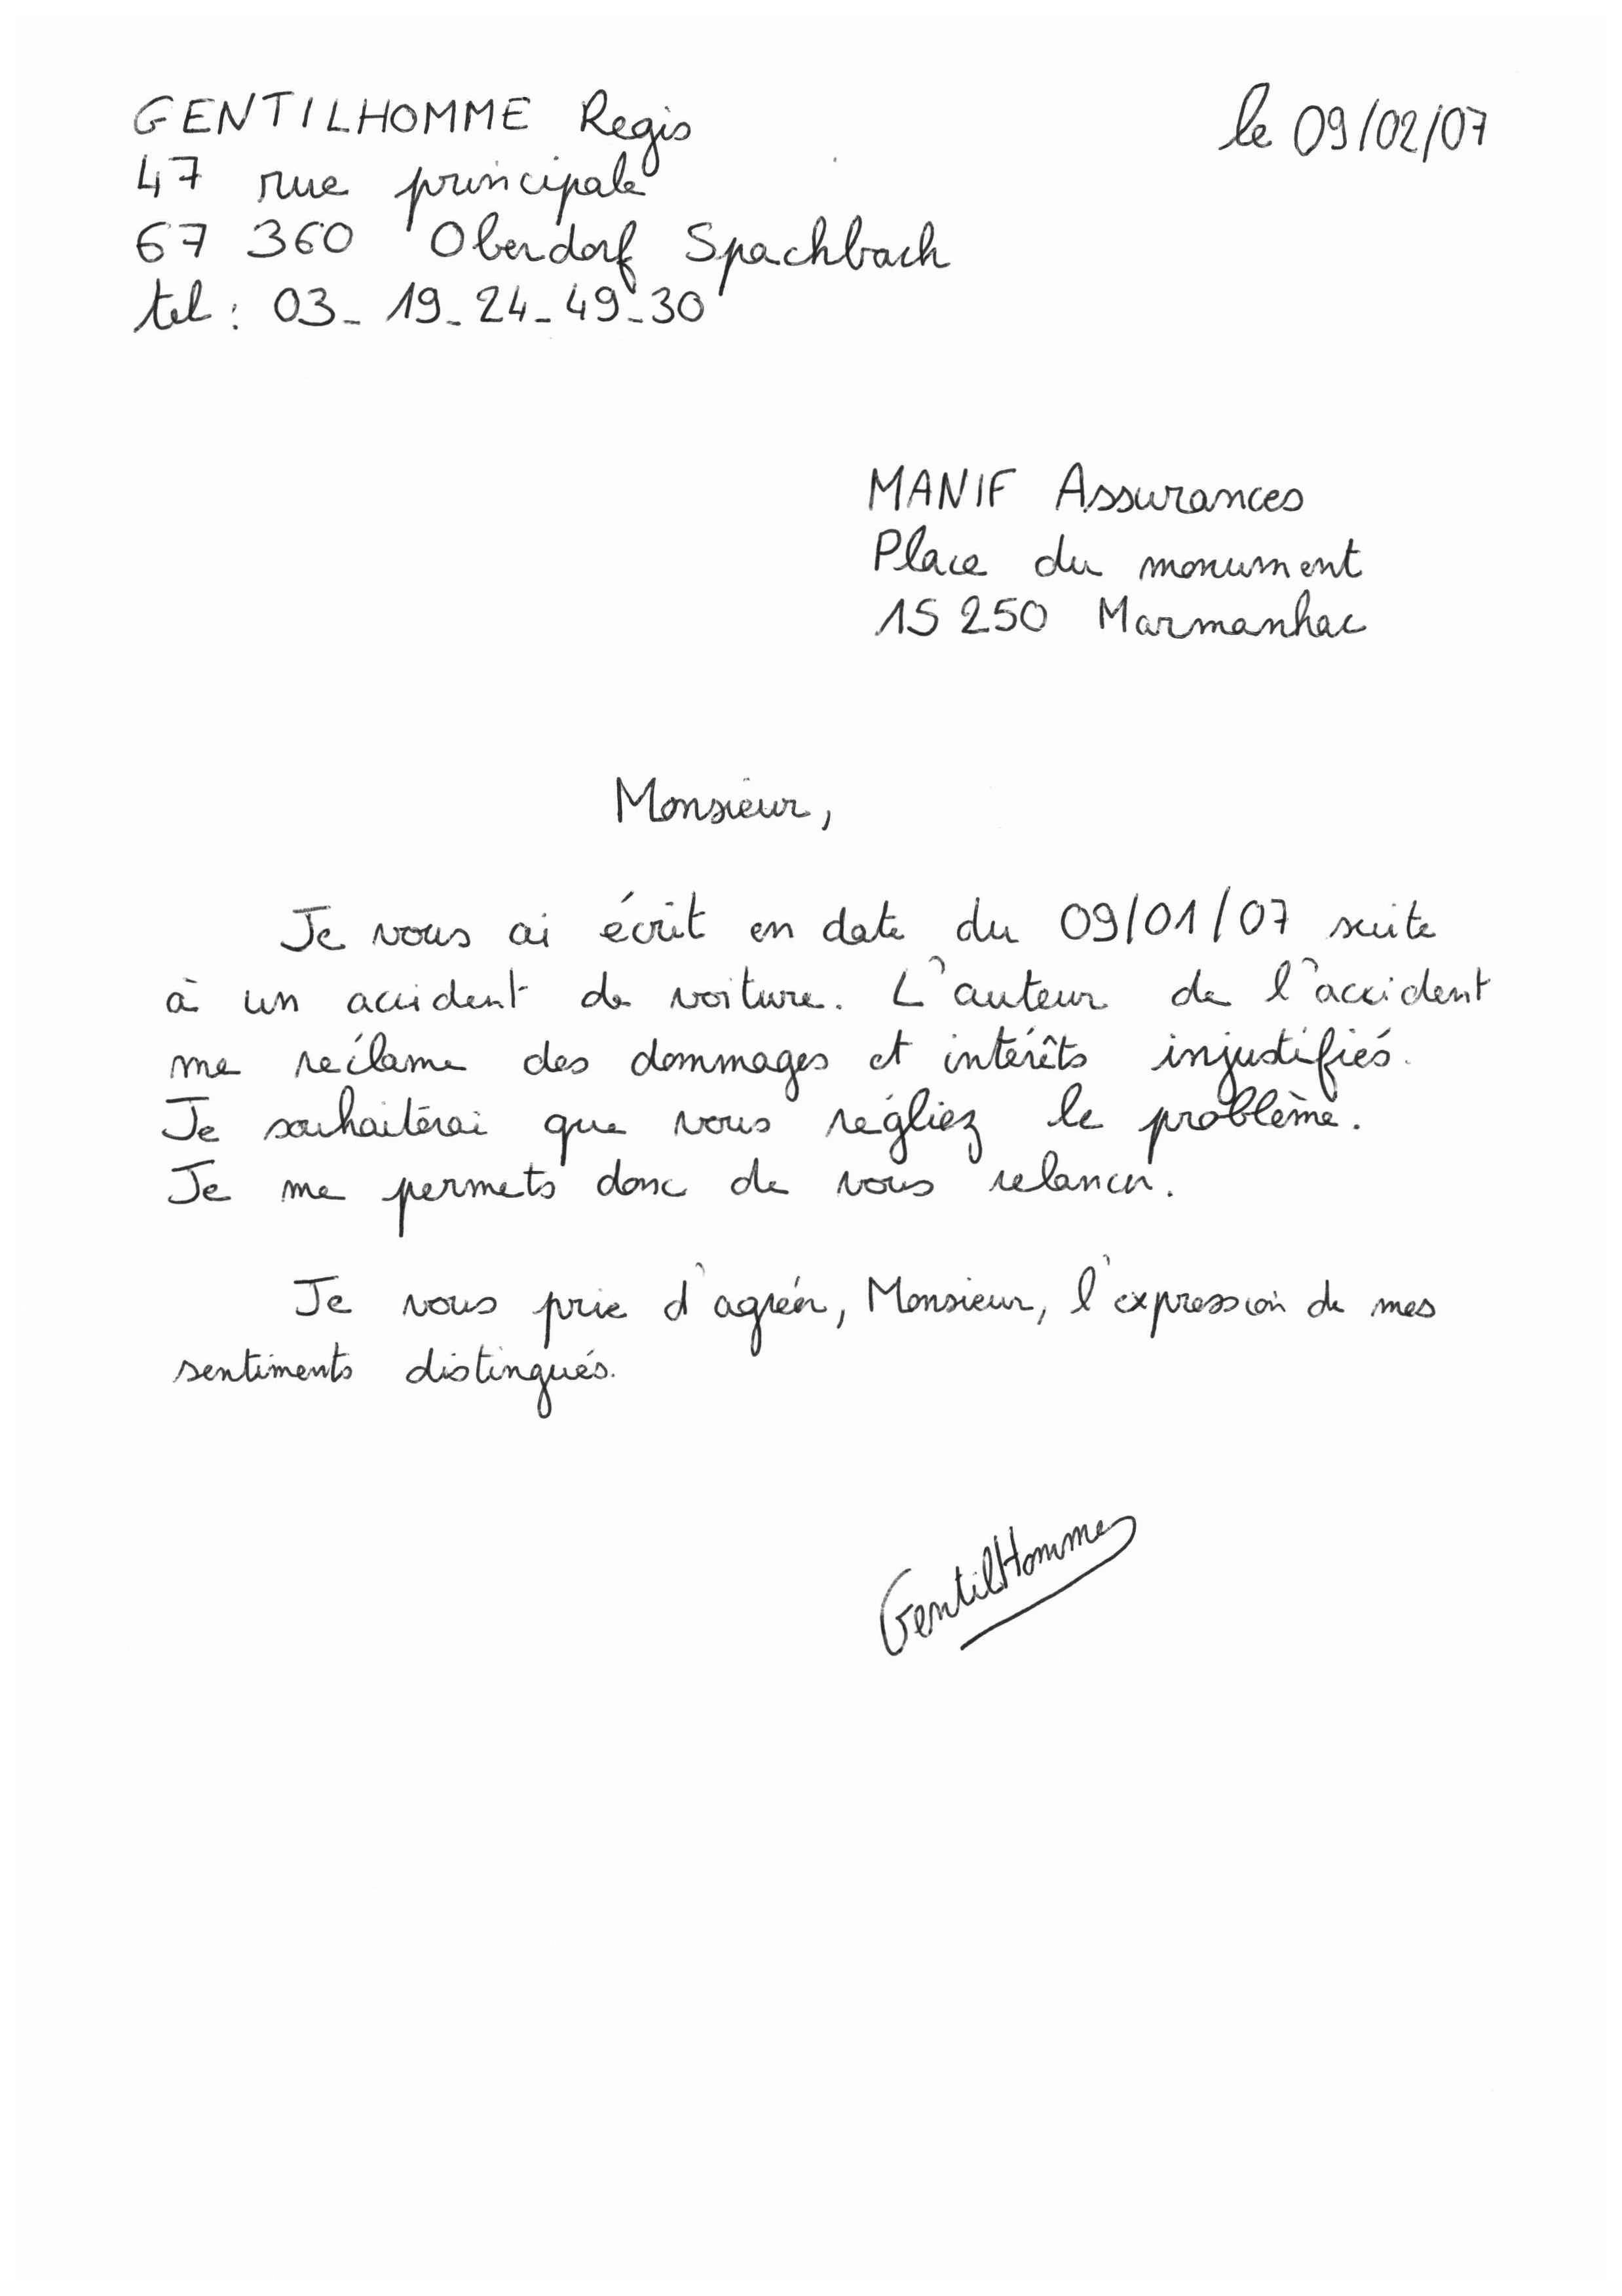 GENTILHOMME Regis
le 09/02/07
47 rue principale
67 360 Oberdorf Spachbach
tel : 03_ 19_ 24_ 49_ 30
MANIF Assurances
Place du monument
15 250 Marmanhac
Monsieur,
Je vous ai écrit en date du 09/01/07 suite
à un accident de voiture. L'auteur de l'accident
me réclame des dommages et intérêts injustifiés.
Je souhaiterai que vous régliez le problème.
Je me permets donc de vous relancer.
Je vous prie d'agréer, Monsieur, l'expression de mes
sentiments distingués.
GentilHomme